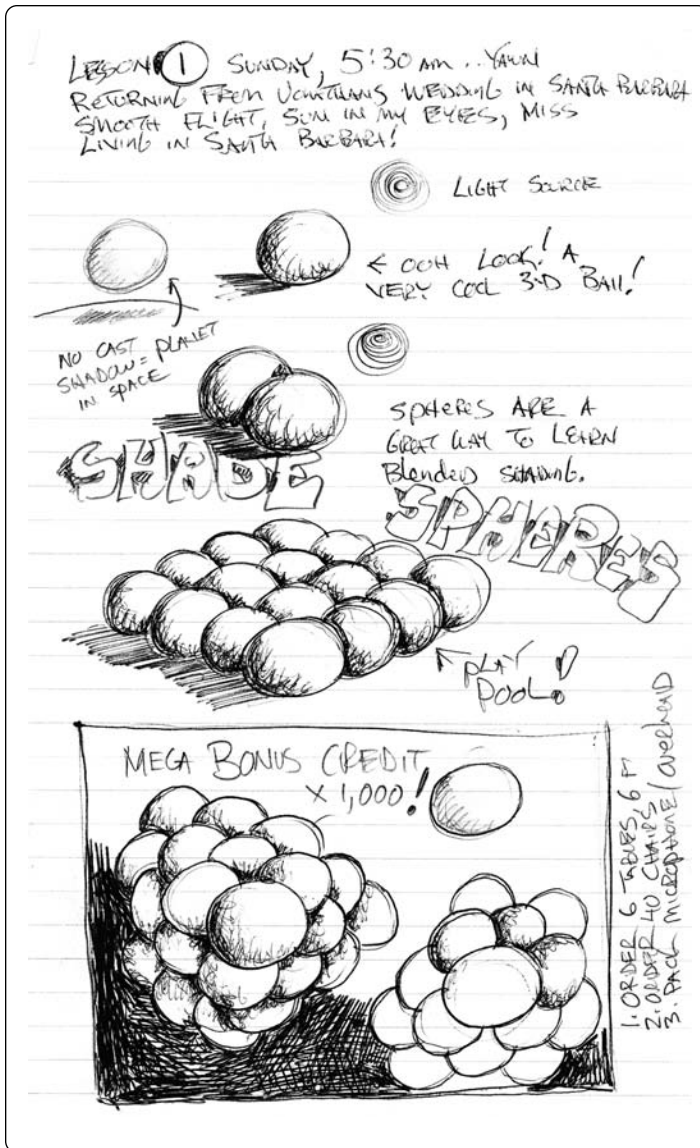 LESSON 1 SUNDAY, 5:30 AM .. YAWN
RETURNING FROM JONATHANS WEDDING IN SANTA BARBARA
SMOOTH FLIGHT, SUN IN MY EYES, MISS
LIVING IN SANTA BARBARA!
LIGHT SOURCE
← OOH LOOK! A
VERY COOL 3-D BALL!
NO CAST
SHADOW = PLANET
IN SPACE
SPHERES ARE A
GREAT WAY TO LEARN
Blended SHADING.
SHADE
SPHERES
PLAY
POOL!
MEGA BONUS CREDIT
× 1,000!
1. ORDER 6 TABLES, 6 F
2. ORDER 40 CHAIRS
3. PACK MICROPHONE / OVERHEAD